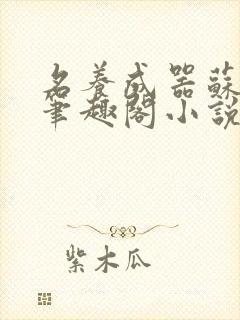 名養成器蘇
筆趣閣小說
紫木瓜